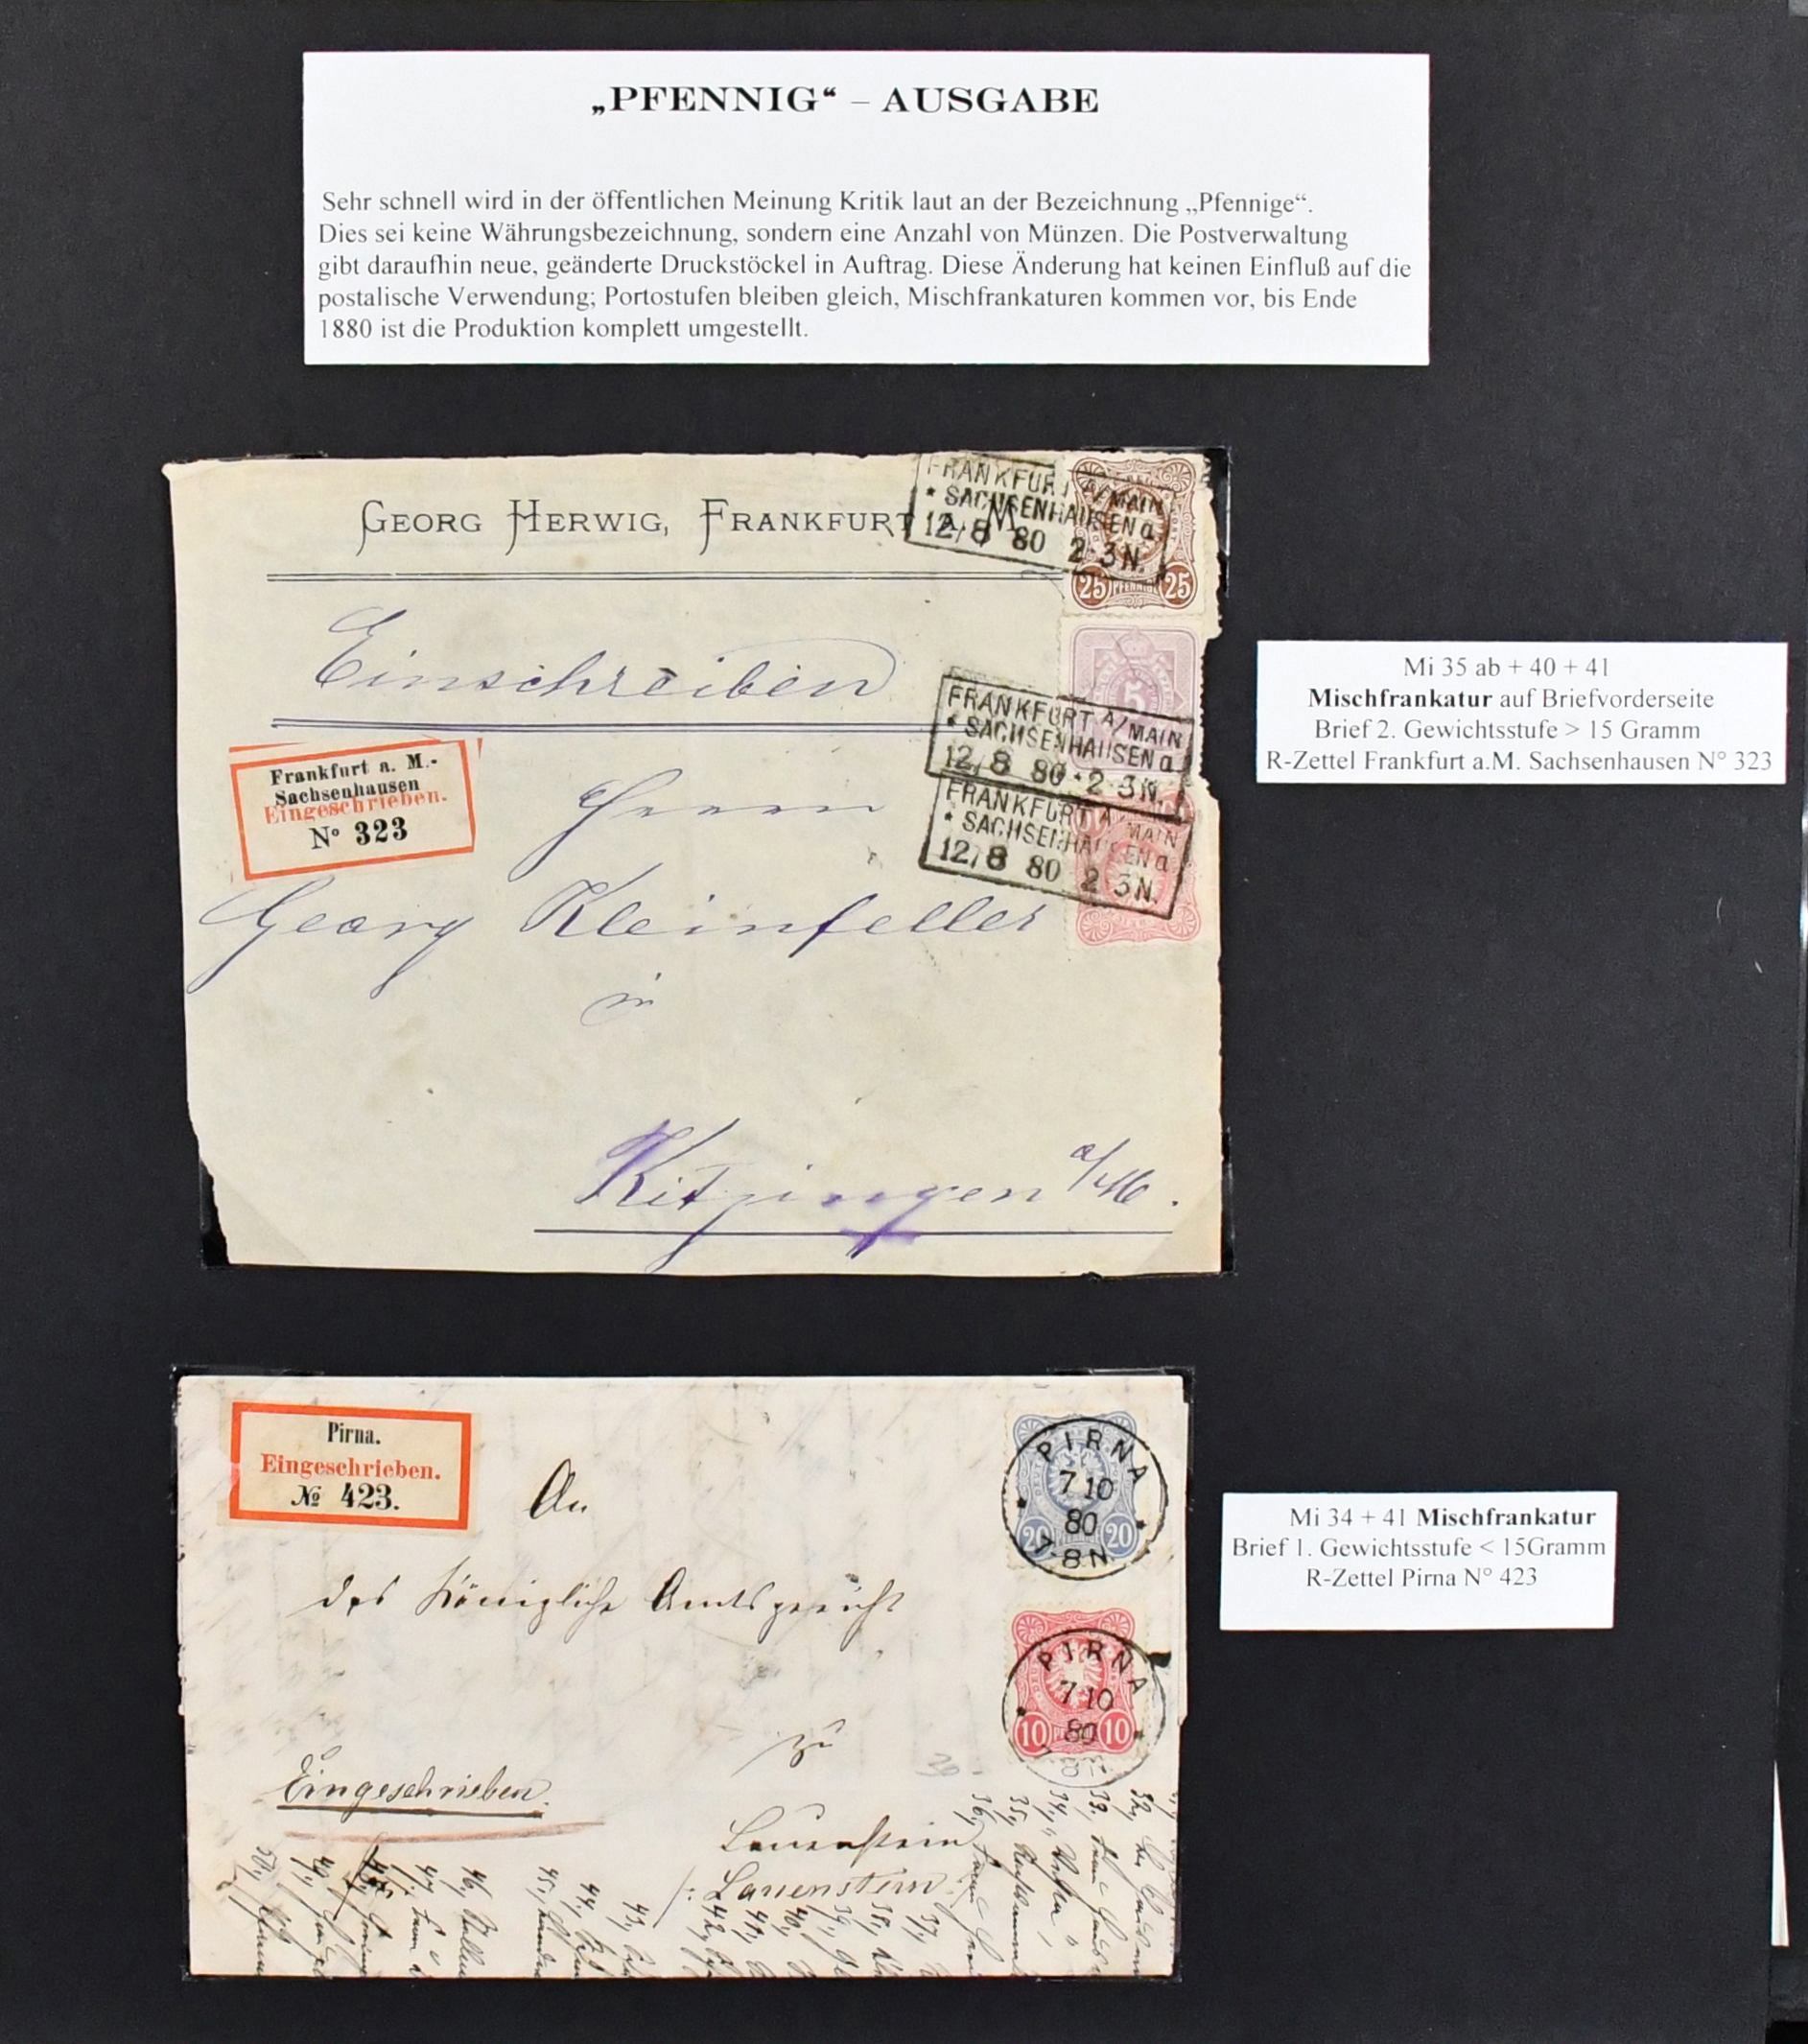 „PFENNIG“ – AUSGABE
Sehr schnell wird in der öffentlichen Meinung Kritik laut an der Bezeichnung „Pfennige“.
Dies sei keine Währungsbezeichnung, sondern eine Anzahl von Münzen. Die Postverwaltung
gibt daraufhin neue, geänderte Druckstöckel in Auftrag. Diese Änderung hat keinen Einfluß auf die
postalische Verwendung; Portostufen bleiben gleich, Mischfrankaturen kommen vor, bis Ende
1880 ist die Produktion komplett umgestellt.
GEORG HERWIG, FRANKFURT A. M.
FRANKFURT A/MAIN
* SACHSENHAUSEN a
12/8 80 2-3N.
25 PFENNIGE 25
Einschreiben
5
FRANKFURT A/MAIN
* SACHSENHAUSEN a
12/8 80 2-3N.
FRANKFURT A/MAIN
* SACHSENHAUSEN a
12/8 80 2-3N.
Frankfurt a. M.-
Sachsenhausen
Eingeschrieben.
N° 323
Herrn
Georg Kleinfeller
in
Kitzingen a/M.
Mi 35 ab + 40 + 41
Mischfrankatur auf Briefvorderseite
Brief 2. Gewichtsstufe > 15 Gramm
R-Zettel Frankfurt a.M. Sachsenhausen N° 323
Pirna.
Eingeschrieben.
№ 423.
An
das Königliche Amtsgericht
zu
Eingeschrieben.
Lauenstein
/: Lauenstein
PIRNA
7 10
80
7-8N
20 20
PIRNA
7 10
80
10 10
30
32,
33.
34,
35,
36,
37,
38,
39,
40,
41,
42,
43,
44,
45,
46,
47,
49,
50,
Mi 34 + 41 Mischfrankatur
Brief 1. Gewichtsstufe < 15Gramm
R-Zettel Pirna N° 423